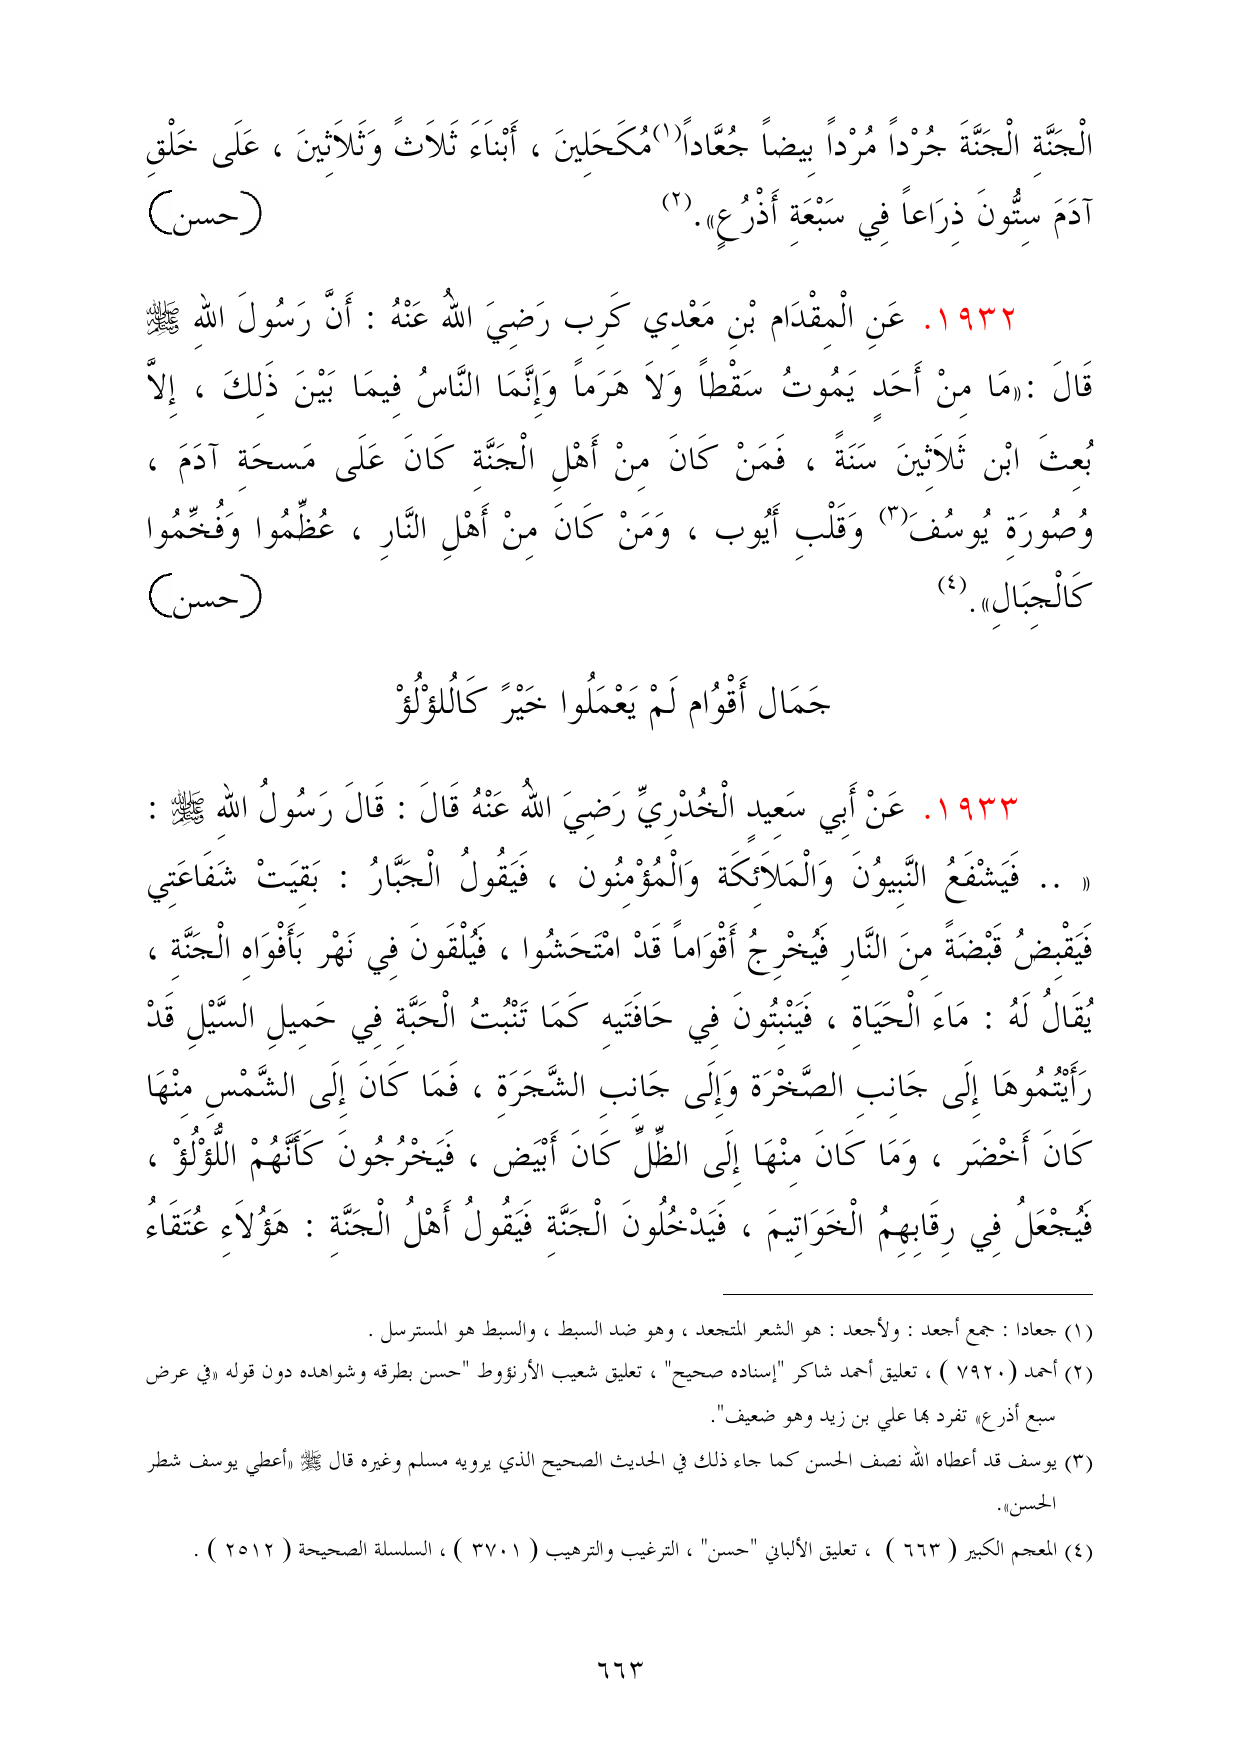 الْجَنَّةِ الْجَنَّةَ جُرْداً مُرْداً بِيضاً جُعَّاداً(١)مُكَحَلِينَ ، أَبْنَاَءَ ثَلاَثٌ وَثَلاَثِينَ ، عَلَى خَلْقِ
آدَمَ سِتُّونَ ذِرَاعاً فِي سَبْعَةِ أَذْرُعٍ».(٢) (حسن)
١٩٣٢. عَنِ الْمِقْدَام بْنِ مَعْدِي كَرِب رَضِيَ اللهُ عَنْهُ : أَنَّ رَسُولَ اللهِ ﷺ
قَالَ :«مَا مِنْ أَحَدٍ يَمُوتُ سَقْطاً وَلاَ هَرَماً وَإِنَّمَا النَّاسُ فِيمَا بَيْنَ ذَلِكَ ، إِلاَّ
بُعِثَ ابْن ثَلاَثِينَ سَنَةً ، فَمَنْ كَانَ مِنْ أَهْلِ الْجَنَّةِ كَانَ عَلَى مَسحَةِ آدَمَ ،
وُصُورَةِ يُوسُفَ(٣) وَقَلْبِ أَيُوب ، وَمَنْ كَانَ مِنْ أَهْلِ النَّارِ ، عُظِّمُوا وَفُخِّمُوا
كَالْجِبَالِ».(٤) (حسن)
جَمَال أَقْوُام لَمْ يَعْمَلُوا خَيْرً كَالُلؤْلُؤْ
١٩٣٣. عَنْ أَبِي سَعِيدٍ الْخُدْرِيِّ رَضِيَ اللهُ عَنْهُ قَالَ : قَالَ رَسُولُ اللهِ ﷺ :
« .. فَيَشْفَعُ النَّبِيوُنَ وَالْمَلاَئِكَة وَالْمُؤْمِنُون ، فَيَقُولُ الْجَبَّارُ : بَقِيَتْ شَفَاعَتِي
فَيَقْبِضُ قَبْضَةً مِنَ النَّارِ فَيُخْرِجُ أَقْوَاماً قَدْ امْتَحَشُوا ، فَيُلْقَونَ فِي نَهْر بَأَفْوَاهِ الْجَنَّةِ ،
يُقَالُ لَهُ : مَاءَ الْحَيَاةِ ، فَيَنْبِتُونَ فِي حَافَتَيهِ كَمَا تَنْبُتُ الْحَبَّةِ فِي حَمِيلِ السَّيْلِ قَدْ
رَأَيْتُمُوهَا إِلَى جَانِبِ الصَّخْرَةِ وَإِلَى جَانِبِ الشَّجَرَةِ ، فَمَا كَانَ إِلَى الشَّمْسِ مِنْهَا
كَانَ أَخْضَر ، وَمَا كَانَ مِنْهَا إِلَى الظِّلِّ كَانَ أَبْيَض ، فَيَخْرُجُونَ كَأَنَّهُمْ اللُّؤْلُؤْ ،
فَيُجْعَلُ فِي رِقَابِهِمُ الْخَوَاتِيمَ ، فَيَدْخُلُونَ الْجَنَّةِ فَيَقُولُ أَهْلُ الْجَنَّةِ : هَؤُلاَءِ عُتَقَاءُ
(١) جعادا : جمع أجعد : ولأجعد : هو الشعر المتجعد ، وهو ضد السبط ، والسبط هو المسترسل .
(٢) أحمد ( ٧٩٢٠ ) ، تعليق أحمد شاكر "إسناده صحيح" ، تعليق شعيب الأرنؤوط "حسن بطرقه وشواهده دون قوله «في عرض
سبع أذرع» تفرد بها علي بن زيد وهو ضعيف".
(٣) يوسف قد أعطاه الله نصف الحسن كما جاء ذلك في الحديث الصحيح الذي يرويه مسلم وغيره قال ﷺ «أعطي يوسف شطر
الحسن».
(٤) المعجم الكبير ( ٦٦٣ ) ، تعليق الألباني "حسن" ، الترغيب والترهيب ( ٣٧٠١ ) ، السلسلة الصحيحة ( ٢٥١٢ ) .
٦٦٣